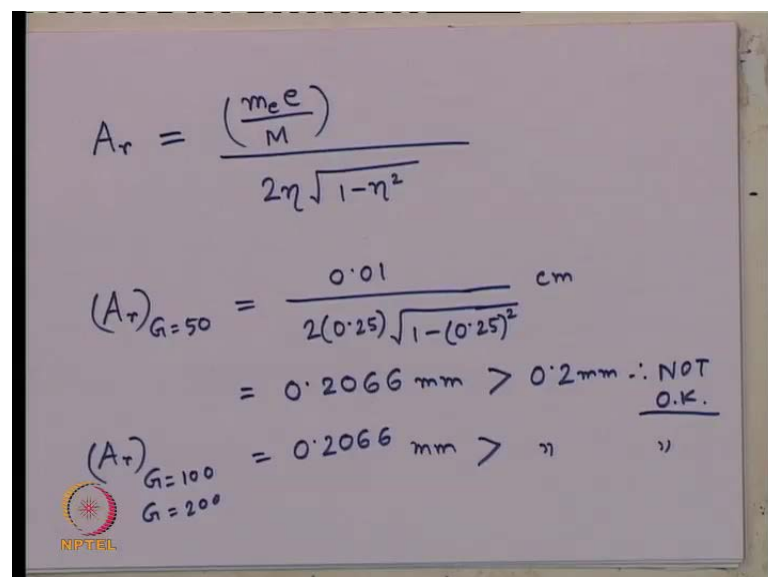 Aᵣ = (mₑe/M) / 2η√(1−η²)
(Aᵣ)G=50 = 0.01 / 2(0.25)√(1−(0.25)²) cm
= 0.2066 mm > 0.2mm ∴ NOT O.K.
(Aᵣ)G=100 G=200 = 0.2066 mm > " "
NPTEL